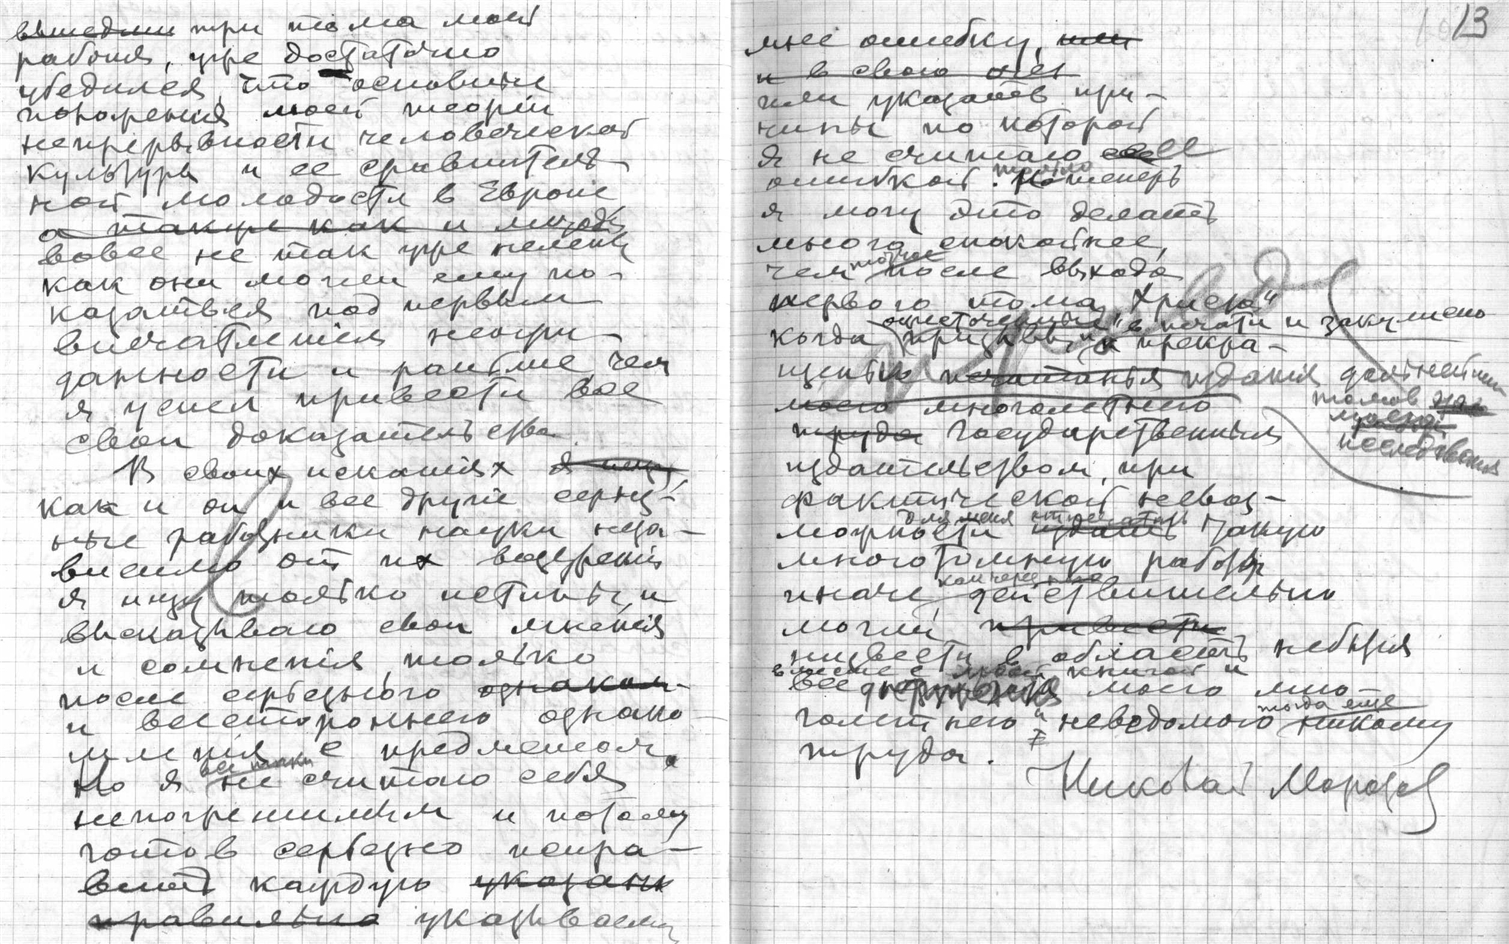 вышедшие три тома моей
работы, уже достаточно
убедился, что основныя
положения моей теории
непрерывности человеческой
культуры и ее сравнитель
ной молодости в Европе
а также как и многое
вовсе не так уже нелепы
как они могли ему по-
казаться под первым
впечатлением неожи-
данности и раньше, чем
я успел привести все
свои доказательства
В своих исканиях я ищу
как и он и все другие серьез-
ные работники науки неза-
висимо от их воззрений
я ищу только истины и
высказываю свои мнения
и сомнения только
после серьезного ознаком-
и всестороннего ознако-
мления с предметом.
Но я все таки не считаю себя
непогрешимым и потому
готов серьезно испра-
вить каждую указан
правильно указываемую
13
мне ошибку, или
и в свою оче
или указать при-
чины по которой
я не считаю ее
ошибкой. Но теперь
я могу это делать
много спокойнее,
чем тотчас после выхода
первого тома "Христа"
когда ожесточенные призывы в печати и закулисно
к прекра-
щению печатанья издания дальнейших
томов
моего
исследования
моего многолетнего
труда Государственным
издательством, при
фактической невоз-
можности для меня напечатать издать такую
многотомную работу
иначе, действительно
могли привести
низвести в область небытия
вместе с моей книгой и
все моего мно-
голетнего и неведомого тогда еще никому
труда.
Николай Морозов